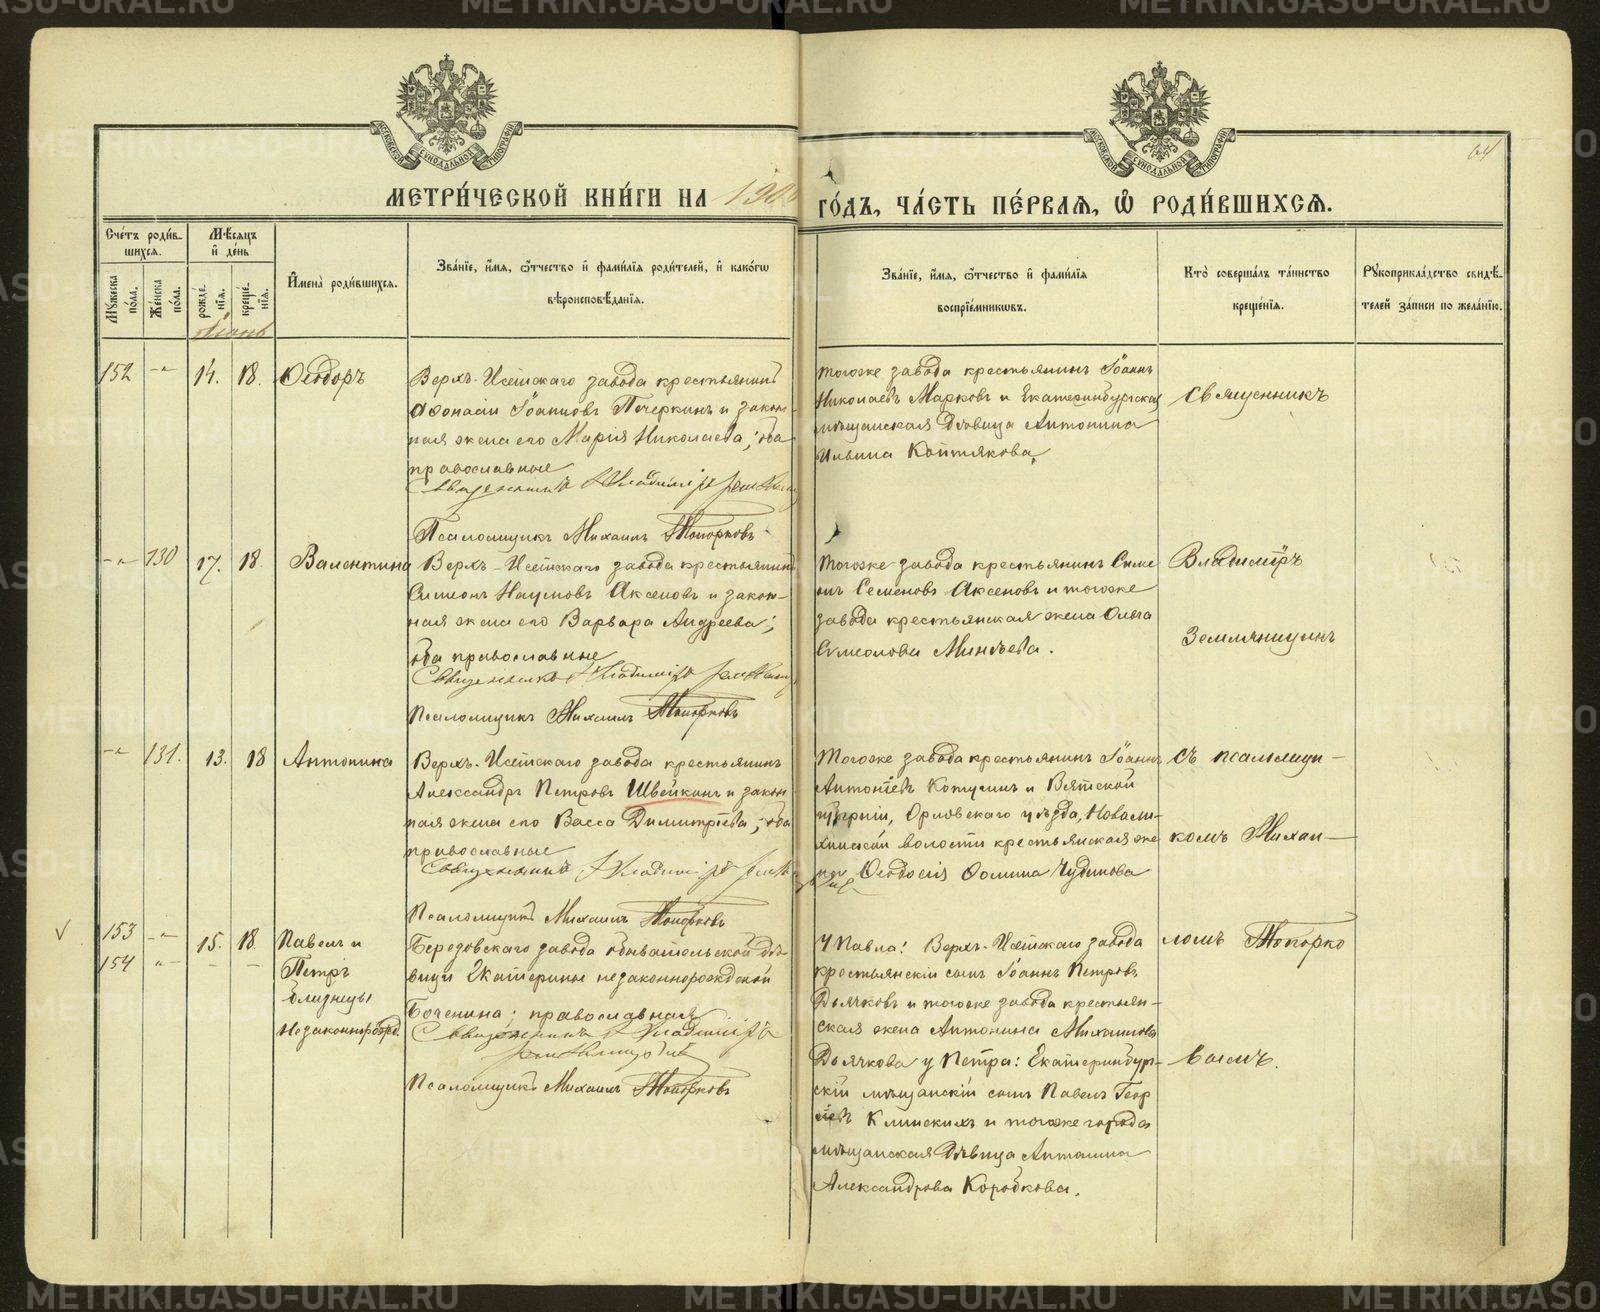 МЕТРИ́ЧЕСКОЙ КНИ́ГИ НА 190
ГО́ДЪ, ЧА́СТЬ ПЕ́РВАЯ, Ѡ҆ РОДИ́ВШИХСЯ.
64
Сче́тъ роди́в-
шихся.
Мѣ́сяцъ
и҆ де́нь
И҆мена̀ роди́вшихся.
Зва́нїе, и҆́мя, ѻ҆́тчество и҆ фами́лїя роди́телей, и҆ како́гѡ
вѣроисповѣ́данїя.
Зва́нїе, и҆́мя, ѻ҆́тчество и҆ фами́лїя
воспрїе́мникѡвъ.
Кто̀ соверша́лъ та́инство
креще́нїя.
Рꙋкоприкла́дство свидѣ́-
телей за́писи по жела́нїю.
Мꙋ́жеска
по́ла.
Же́нска
по́ла.
рожде́-
нїя.
креще́-
нїя.
Іюнь
152 -"- 14. 18. Ѳеодоръ
Верхъ-Исетскаго завода крестьянинъ
Аѳонасій Іоанновъ Печеркинъ и закон-
ная жена его Марія Николаева; оба
православные
Священникъ Владиміръ
Псаломщикъ Михаилъ Топорковъ
тогоже завода крестьянинъ Іоаннъ
Николаевъ Марковъ и Екатеринбургская
мѣщанская дѣвица Антонина
Ильина Коптякова.
Священникъ
-"- 130 17. 18 Валентина
Верхъ-Исетскаго завода крестьянинъ
Симеонъ Наумовъ Аксеновъ и закон-
ная жена его Варвара Андреева;
оба православные
Священникъ Владиміръ
Псаломщикъ Михаилъ Топорковъ
Тогоже завода крестьянинъ Симе
онъ Семеновъ Аксеновъ и тогоже
завода крестьянская жена Ольга
Симеонова Минѣева.
Владиміръ
Земляницынъ
-"- 131. 13. 18 Антонина
Верхъ-Исетскаго завода крестьянинъ
Александръ Петровъ Швейкинъ и закон
ная жена его Васса Димитріева; оба
православные
Священникъ Владиміръ
Псаломщикъ Михаилъ Топорковъ
Тогоже завода крестьянинъ Іоаннъ
Антоніевъ Котугинъ и Вятской
губерніи, Орловскаго уѣзда,
волости крестьянская же
на Ѳеодосія Ѳомина Чудинова
съ псаломщи-
комъ Михаи-
153 -"- 15. 18. Павелъ и
154 "- - - Петръ
близнецы
незаконнорожд.
Березовскаго завода обывательской дѣ-
вицы Екатерины незаконнорожденой
Боченина; православная
Священникъ Владиміръ
Псаломщикъ Михаилъ Топорковъ
У Павла: Верхъ-Исетскаго завода
крестьянскій сынъ Іоаннъ Петровъ
Дьячковъ и тогоже завода крестьян-
ская жена Антонина Михаилова
Дьячкова у Петра: Екатеринбург-
скій мѣщанскій сынъ Павелъ Геор
гіевъ Клинскихъ и тогоже города
мѣщанская дѣвица Антонина
Александрова Коробкова.
ломъ Топорко
вымъ.